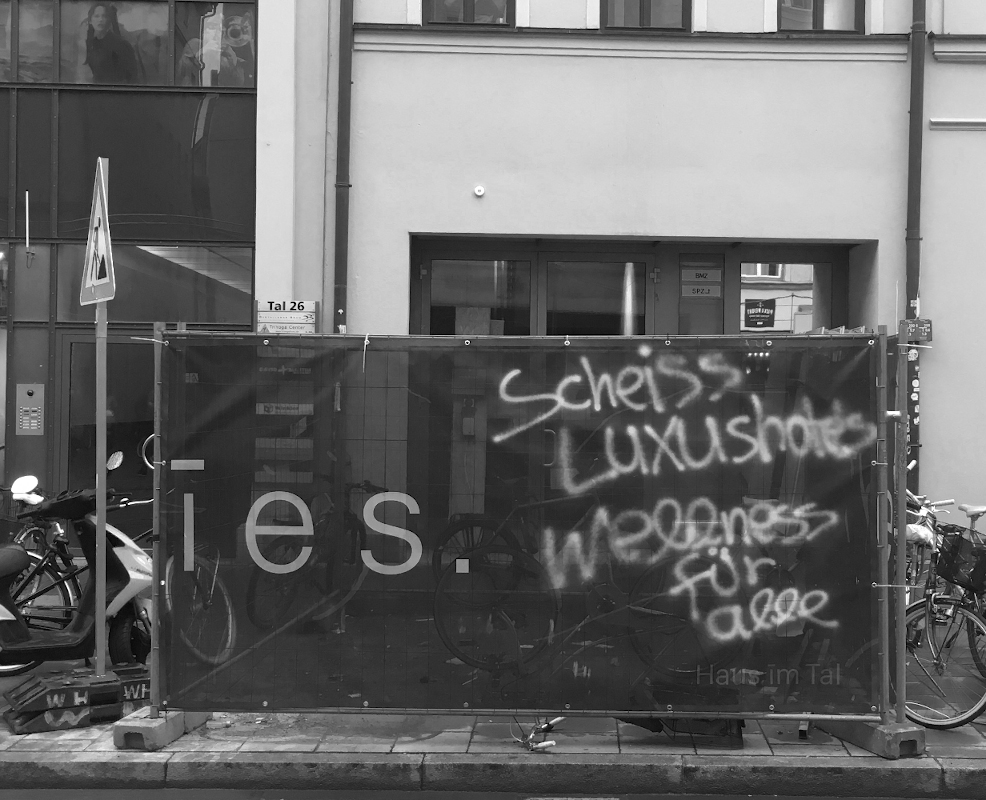 Tal 26
BMZ
SPZ
Scheiss
Luxushotels
Wellness
für
alle
ies.
Hans im Tal
W H
WH